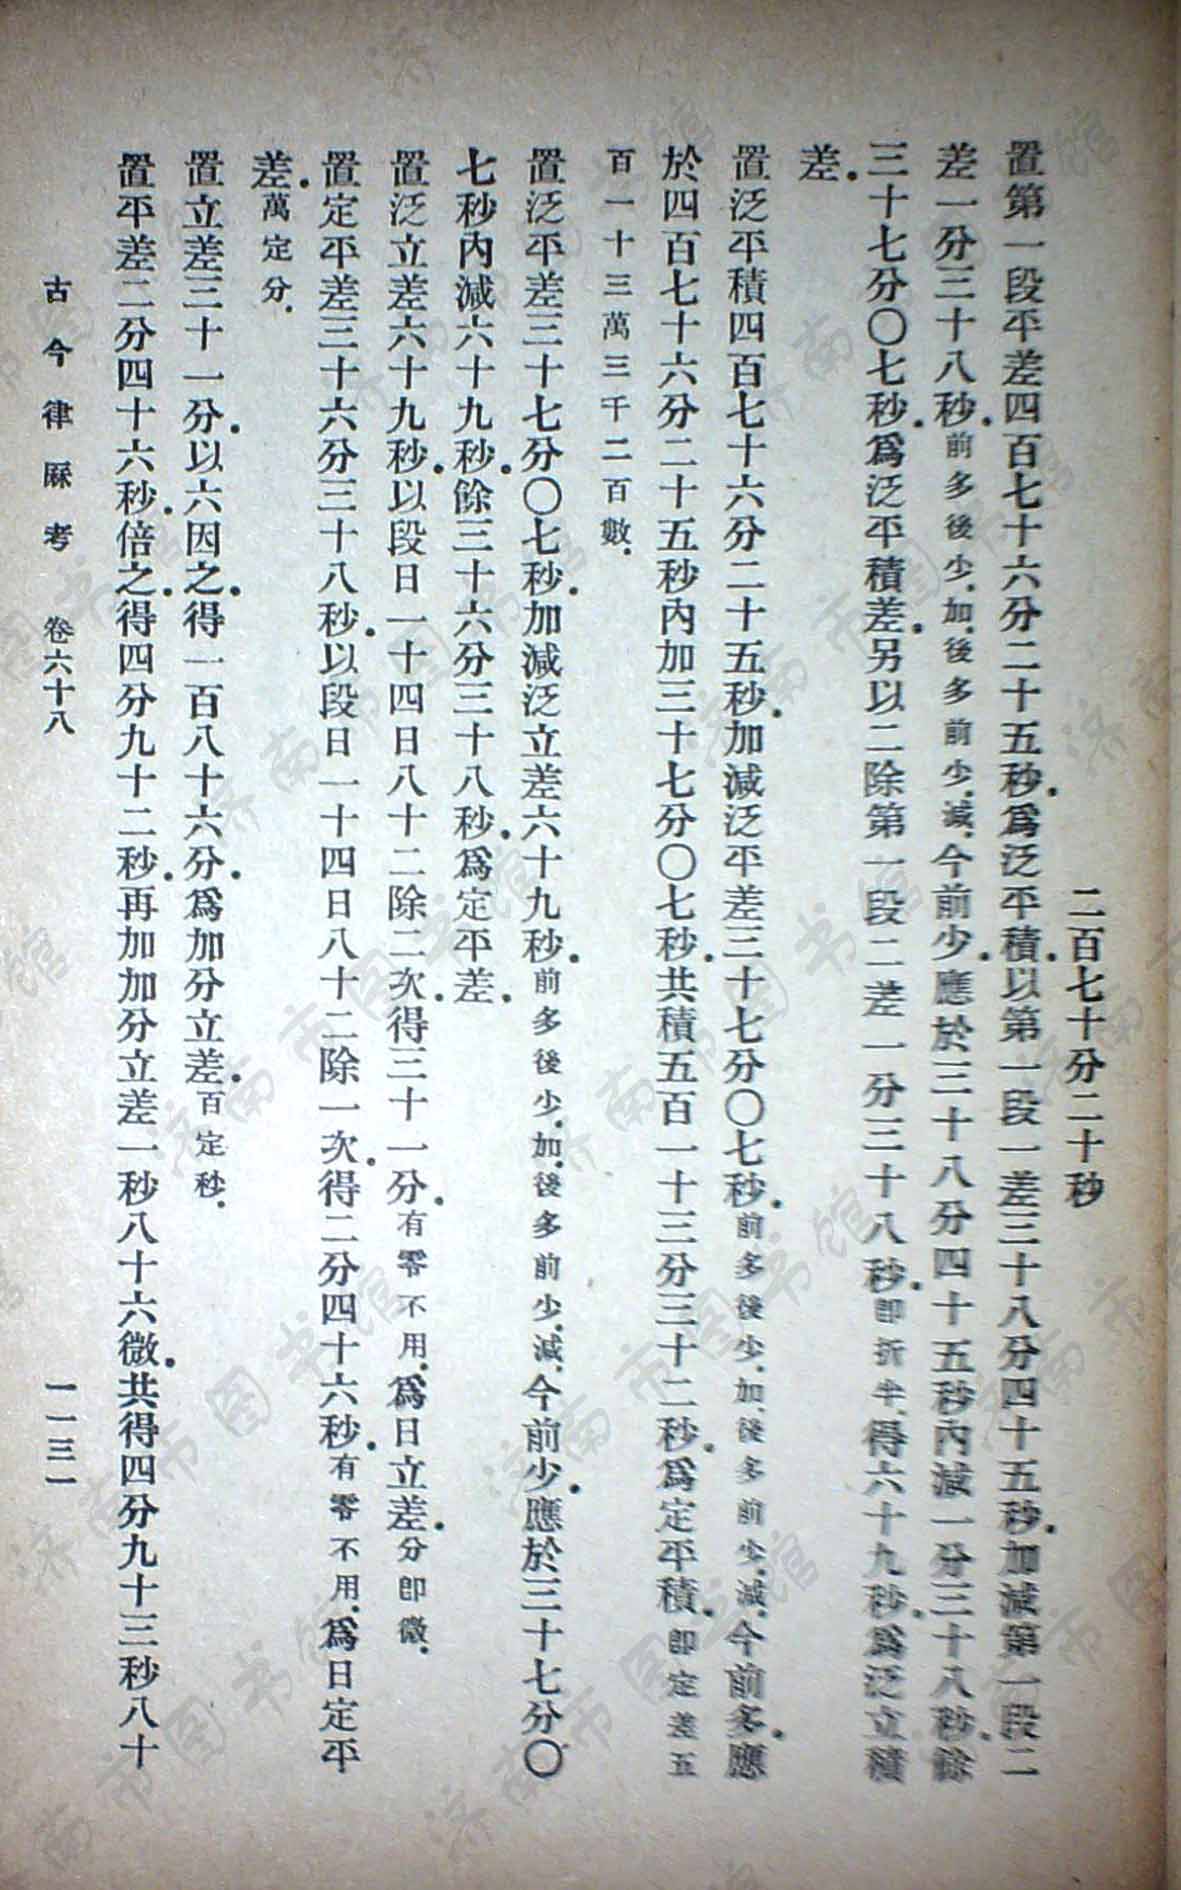 二百七十分二十秒
置第一段平差四百七十六分二十五秒．爲泛平積．以第一段一差三十八分四十五秒．加減第一段二
差一分三十八秒．前多後少．加．後多前少．減．今前少．應於三十八分四十五秒內減一分三十八秒．餘
三十七分〇七秒．爲泛平積差．另以二除第一段二差一分三十八秒．卽折半．得六十九秒．爲泛立積
差．
置泛平積四百七十六分二十五秒．加減泛平差三十七分〇七秒．前多後少．加．後多前少．減．今前多．應
於四百七十六分二十五秒內加三十七分〇七秒．共積五百一十三分三十二秒．爲定平積．卽定差五
百一十三萬三千二百數．
置泛平差三十七分〇七秒．加減泛立差六十九秒．前多後少．加．後多前少．減．今前少．應於三十七分〇
七秒內減六十九秒．餘三十六分三十八秒．爲定平差．
置泛立差六十九秒．以段日一十四日八十二除二次．得三十一分．有零不用．爲日立差．分卽微．
置定平差三十六分三十八秒．以段日一十四日八十二除一次．得二分四十六秒．有零不用．爲日定平
差．萬定分．
置立差三十一分．以六因之．得一百八十六分．爲加分立差．百定秒．
置平差二分四十六秒．倍之．得四分九十二秒．再加加分立差一秒八十六微．共得四分九十三秒八十
古今律厤考 卷六十八 一一三一